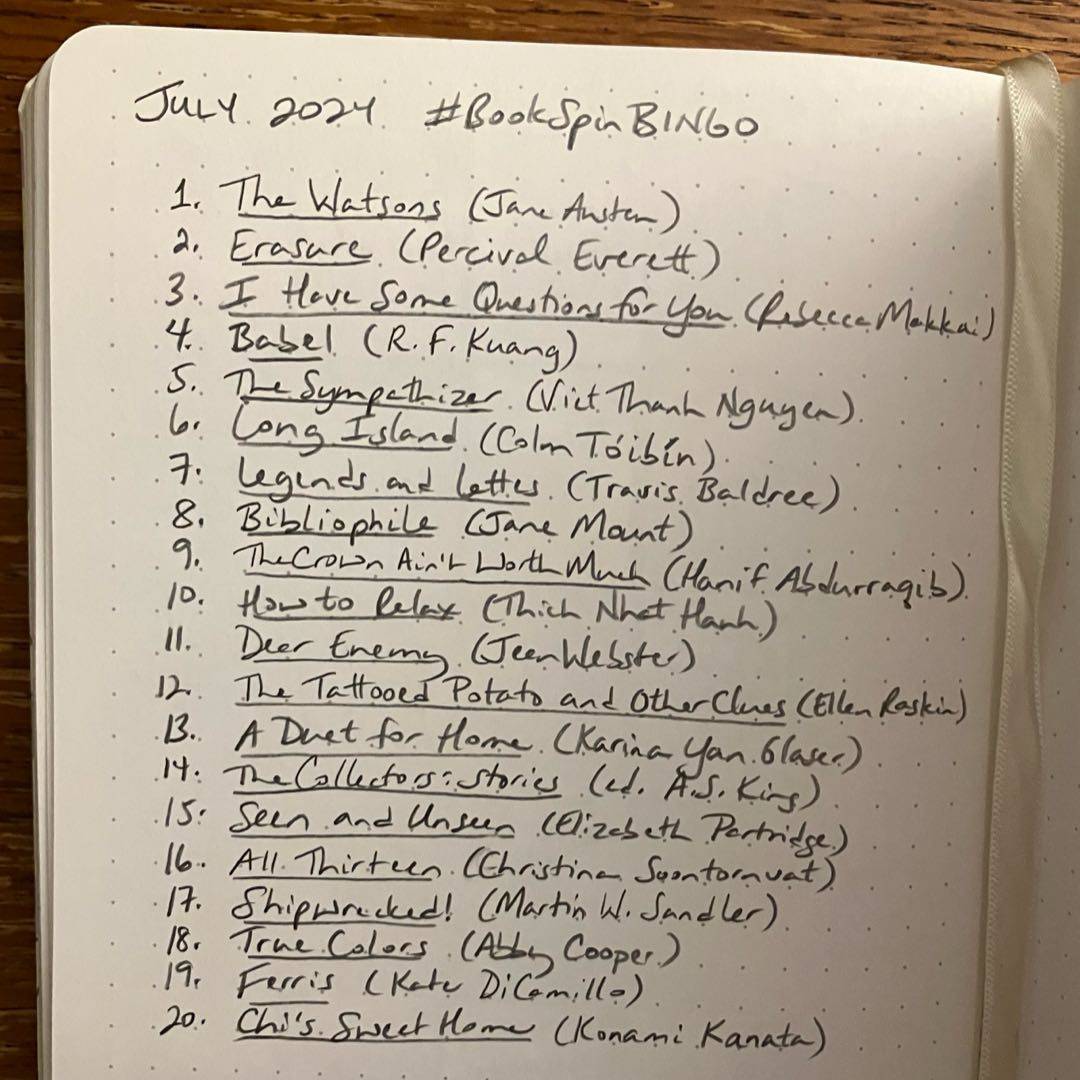 JULY 2024 #BookSpinBINGO
1. The Watsons (Jane Austen)
2. Erasure (Percival Everett)
3. I Have Some Questions for You (Rebecca Makkai)
4. Babel (R.F. Kuang)
5. The Sympathizer (Viet Thanh Nguyen)
6. Long Island (Colm Tóibín)
7. Legends and Lattes (Travis Baldree)
8. Bibliophile (Jane Mount)
9. The Crown Ain't Worth Much (Hanif Abdurraqib)
10. How to Relax (Thich Nhat Hanh)
11. Dear Enemy (Jean Webster)
12. The Tattooed Potato and Other Clues (Ellen Raskin)
13. A Duet for Home (Karina Yan Glaser)
14. The Collectors: Stories (ed. A.S. King)
15. Seen and Unseen (Elizabeth Partridge)
16. All Thirteen (Christina Soontornvat)
17. Shipwrecked! (Martin W. Sandler)
18. True Colors (Abby Cooper)
19. Ferris (Kate DiCamillo)
20. Chi's Sweet Home (Konami Kanata)